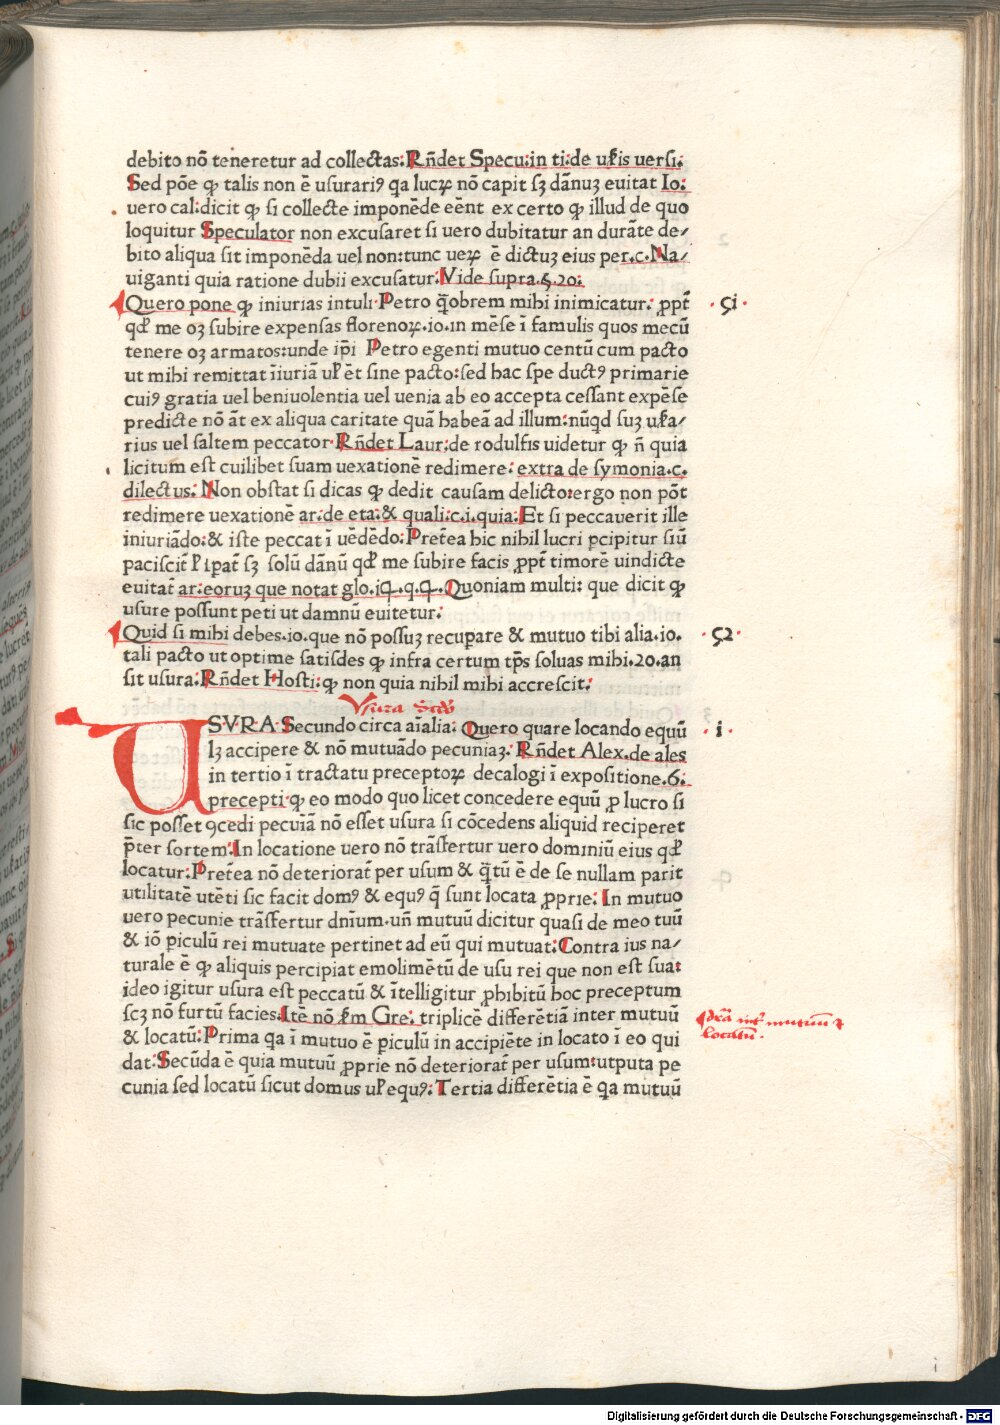 debito nō teneretur ad collectas: Rñdet Specu: in ti: de uſſis uersi.
Sed põe ꝙ talis non ē usurariꝰ qa lucꝝ nō capit sꝫ dānuꝫ euitat Io:
uero cal: dicit ꝙ si collecte imponēde eēnt ex certo ꝙ illud de quo
loquitur Speculator non excusaret si uero dubitatur an durāte de/
bito aliqua sit imponēda uel non: tunc ueꝝ ē dictuꝫ eius per. c. Na/
uiganti quia ratione dubii excusatur: Vide supra. §. 20:
Quero pone ꝙ iniurias intuli Petro q̄obrem mihi inimicatur: ꝓpt̄ · 51 ·
qđ me oꝫ subire expensas florenoꝝ. io. in mēse ī famulis quos mecū
tenere oꝫ armatos: unde ip̄i Petro egenti mutuo centū cum pacto
ut mihi remittat īiuriā uꝉ ēt sine pacto: sed hac spe ductꝰ primarie
cuiꝰ gratia uel beniuolentia uel uenia ab eo accepta cessant expēse
predicte nō āt ex aliqua caritate quā habeā ad illum: nūqd suꝫ uſa/
rius uel saltem peccator Rñdet Laur: de rodulfis uidetur ꝙ ñ quia
licitum est cuilibet suam uexationē redimere: extra de symonia. c.
dilectus: Non obstat si dicas ꝙ dedit causam delicto: ergo non pōt
redimere uexationē ar: de eta: & quali: c. i. quia: Et si peccauerit ille
iniuriādo: & iste peccat ī uēdēdo: Pret̄ea hic nihil lucri ꝑcipitur siū
paciscit̄ ꝉ ipat̄ sꝫ solū dānū qđ me subire facis ꝓpt̄ timorē uindicte
euitat̄ ar: eoruꝫ que notat glo. iq. q. q. Quoniam multi: que dicit ꝙ
usure possunt peti ut damnū euitetur:
Quid si mihi debes. io. que nō possuꝫ recupare & mutuo tibi alia. io. · 52 ·
tali pacto ut optime satisdes ꝙ infra certum tꝑs soluas mihi. 20. an
sit usura: Rñdet Hosti: ꝙ non quia nihil mihi accrescit:
Vsura Scđo
USVRA Secundo circa aīalia: Quero quare locando equū · i ·
lꝫ accipere & nō mutuādo pecuniaꝫ: Rñdet Alex. de ales
in tertio ī tractatu preceptoꝝ decalogi ī expositione. 6.
precepti ꝙ eo modo quo licet concedere equū ꝓ lucro si
sic posset ꝯcedi pecuīā nō esset usura si cōcedens aliquid reciperet
p̄ter sortem: In locatione uero nō trāsfertur uero dominiū eius qđ
locatur: Pret̄ea nō deteriorat̄ per usum & q̄tū ē de se nullam parit
utilitatē utēti sic facit domꝰ & equꝰ q̄ sunt locata ꝓprie: In mutuo
uero pecunie trāsfertur dnīum. uñ mutuū dicitur quasi de meo tuū
& iō piculū rei mutuate pertinet ad eū qui mutuat: Contra ius na/
turale ē ꝙ aliquis percipiat emolimētū de usu rei que non est sua:
ideo igitur usura est peccatū & ītelligitur ꝓhibitū hoc preceptum
scꝫ nō furtū facies: Itē nō ẜm Gre: triplicē differētiā inter mutuū
& locatū: Prima qa ī mutuo ē piculū in accipiēte in locato ī eo qui
dr̄ā int̄ mutuum ⁊
locatū.
dat: Secūda ē quia mutuū ꝓprie nō deteriorat̄ per usum: utputa pe
cunia sed locatū sicut domus uꝉ equꝰ: Tertia differētia ē qa mutuū
i
Digitalisierung gefördert durch die Deutsche Forschungsgemeinschaft - DFG